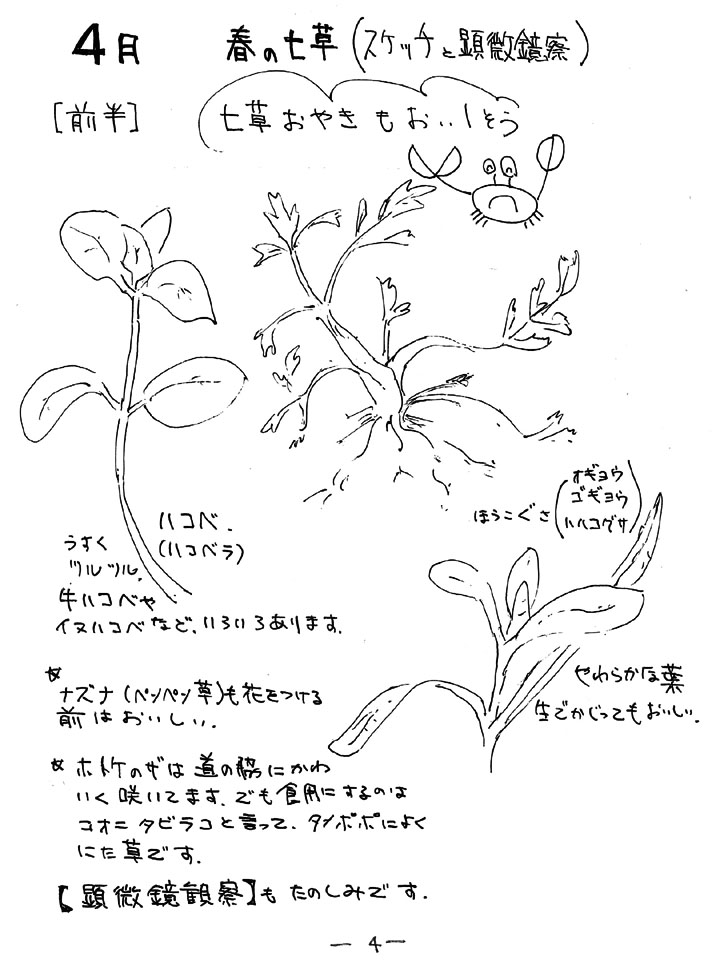 4月 春の七草(スケッチと顕微鏡察)
[前半]
七草おやきもおいしそう
オギョウ
ゴギョウ
ハハコグサ
ほうこぐさ
ハコベ.
(ハコベラ)
うすく
ツルツル.
牛ハコベや
イヌハコベなど、いろいろあります.
やわらかな葉
生でかじってもおいしい.
ナズナ(ペンペン草)も花をつける
前はおいしい.
ホトケのザは道の脇にかわ
いく咲いてます.でも食用にするのは
コオニタビラコと言って、タンポポによく
にた草です.
【顕微鏡観察】もたのしみです.
— 4 —